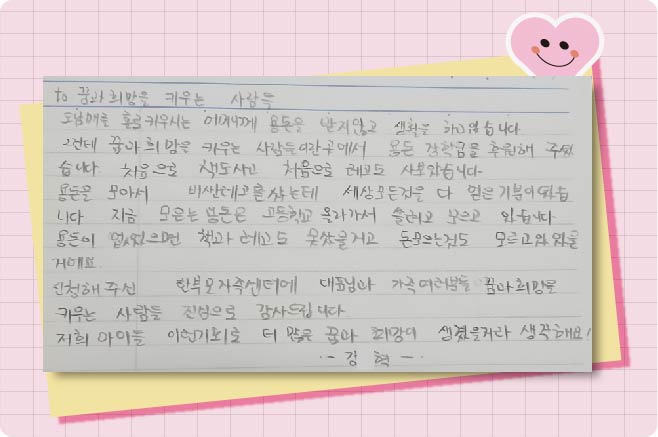 to 꿈과 희망을 키우는 사람들
도남매를 홀로키우시는 어머니께 용돈을 받지않고 생활을 하고있습니다
그런데 꿈과 희망을 키우는 사람들이란곳에서 용돈 장학금을 후원해 주셨
습니다. 처음으로 책도사고 처음으로 레고도 사보았습니다.
용돈을 모아서 비싼레고를 샀는데 세상모든것을 다 얻은 기분이였습
니다 지금 모으는 용돈은 고등학교 올라가서 쓸려고 모으고 있습니다
용돈이 없었으면 책과 레고도 못샀을거고 돈모으는것도 모르고있었을
거예요.
신청해 주신 한부모가족센터에 대표님과 가족여러분들 꿈과희망을
키우는 사람들 진심으로 감사드립니다
저희 아이들 이런기회로 더 많은 꿈과 희망이 생겼을거라 생각해요!
- 강 혁 -